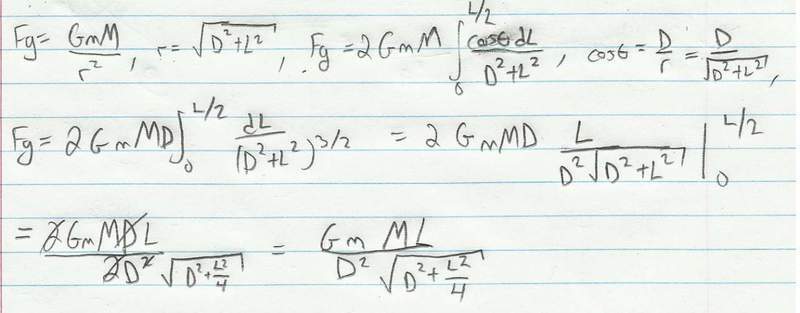 Fg = GmM/r², r = √(D²+L²), Fg = 2GmM ∫₀^(L/2) cosθ dL/(D²+L²), cosθ = D/r = D/√(D²+L²),
Fg = 2GmMD ∫₀^(L/2) dL/(D²+L²)^(3/2) = 2GmMD L/(D²√(D²+L²)) |₀^(L/2)
= 2GmMDL/(2D²√(D²+L²/4)) = GmML/(D²√(D²+L²/4))